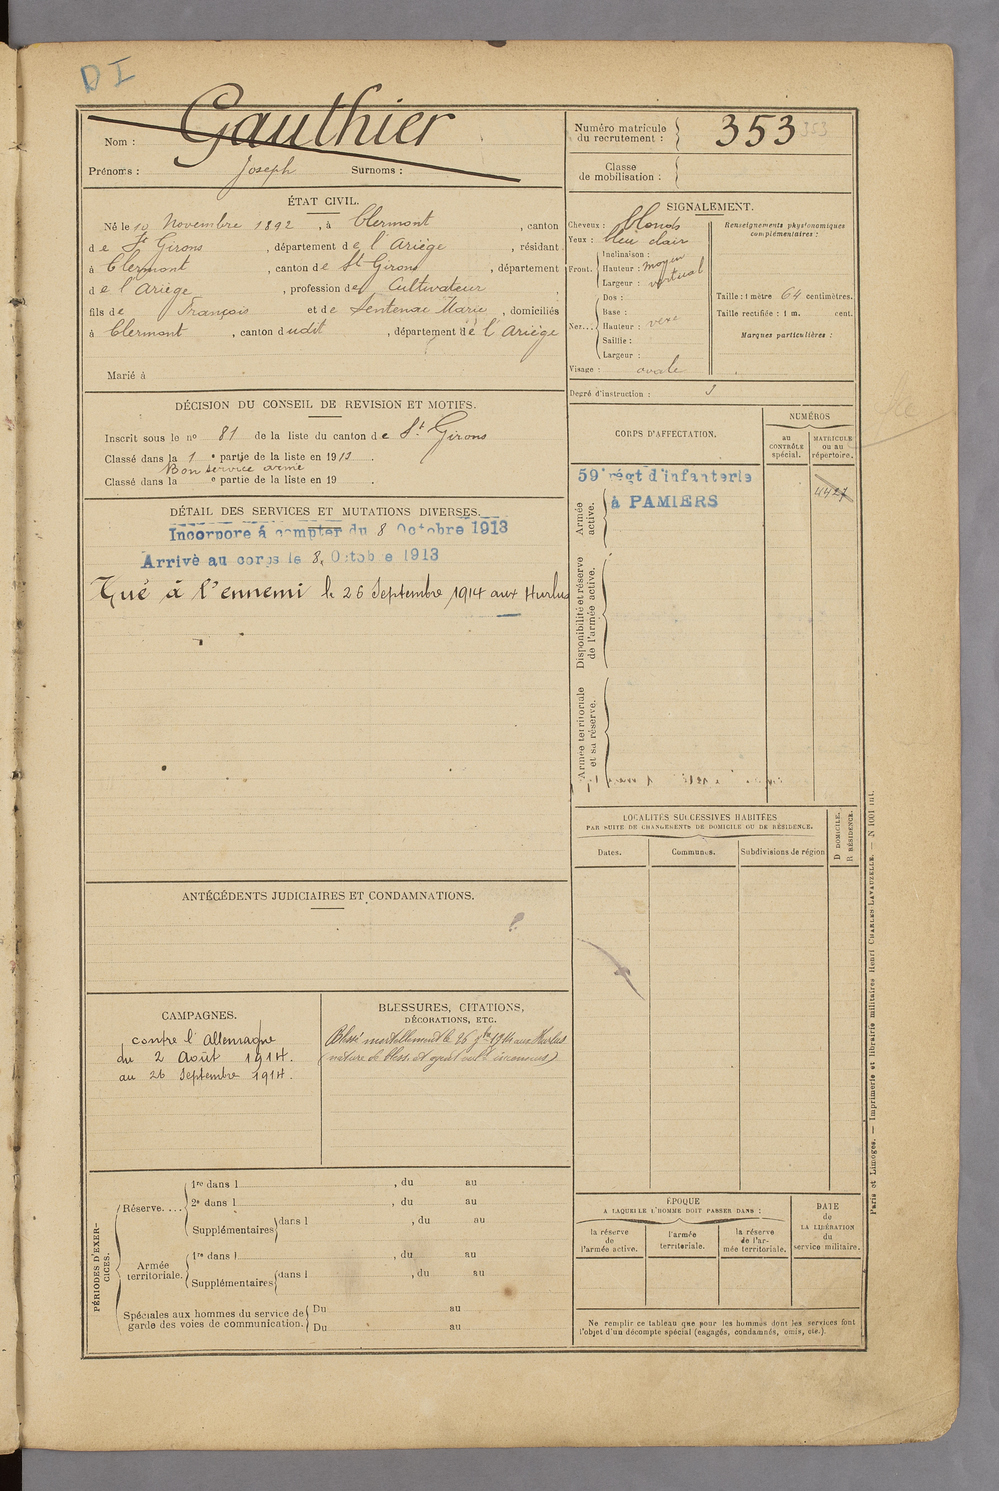 D I
Nom : Gauthier
Prénoms : Joseph Surnoms :
Numéro matricule du recrutement : 353
Classe de mobilisation :
ÉTAT CIVIL.
Né le 10 Novembre 1892, à Clermont, canton
de St Girons, département de l'Ariège, résidant
à Clermont, canton de St Girons, département
de l'Ariège, profession de Cultivateur,
fils de François et de Sentenac Marie, domiciliés
à Clermont, canton dudit, département de l'Ariège
Marié à
SIGNALEMENT.
Cheveux : blonds
Yeux : bleu clair
Front. Inclinaison :
Hauteur : moyen
Largeur : vertical
Nez... Dos :
Base :
Hauteur : vexe
Saillie :
Largeur :
Visage : ovale
Renseignements physionomiques complémentaires :
Taille : 1 mètre 64 centimètres.
Taille rectifiée : 1 m. cent.
Marques particulières :
Degré d'instruction : 3
DÉCISION DU CONSEIL DE REVISION ET MOTIFS.
Inscrit sous le no 81 de la liste du canton de St. Girons
Classé dans la 1 e partie de la liste en 1913.
Bon service armé
Classé dans la e partie de la liste en 19 .
DÉTAIL DES SERVICES ET MUTATIONS DIVERSES.
Incorporé à compter du 8 Octobre 1913
Arrivé au corps le 8 Octobre 1913
Tué à l'ennemi le 26 Septembre 1914 aux Hurlus
CORPS D'AFFECTATION.
NUMÉROS
au CONTRÔLE spécial.
MATRICULE ou au répertoire.
59e régt d'infanterie
à PAMIERS
4427
Armée active.
Disponibilité et réserve de l'armée active.
Armée territoriale et sa réserve.
LOCALITÉS SUCCESSIVES HABITÉES
PAR SUITE DE CHANGEMENTS DE DOMICILE OU DE RÉSIDENCE.
Dates.
Communes.
Subdivisions de région
D DOMICILE.
R RÉSIDENCE.
ANTÉCÉDENTS JUDICIAIRES ET CONDAMNATIONS.
CAMPAGNES.
contre l'Allemagne
du 2 Août 1914.
au 26 Septembre 1914.
BLESSURES, CITATIONS,
DÉCORATIONS, ETC.
Blessé mortellement le 26 7bre 1914 aux Hurlus
(nature de bless. et inconnus)
PÉRIODES D'EXERCICES.
Réserve....
1re dans l , du au
2e dans l , du au
Supplémentaires dans l , du au
Armée territoriale.
1re dans l , du au
Supplémentaires dans l , du au
Spéciales aux hommes du service de garde des voies de communication.
Du au
Du au
ÉPOQUE
A LAQUELLE L'HOMME DOIT PASSER DANS :
la réserve de l'armée active.
l'armée territoriale.
la réserve de l'armée territoriale.
DATE de LA LIBÉRATION du service militaire.
Ne remplir ce tableau que pour les hommes dont les services font
l'objet d'un décompte spécial (engagés, condamnés, omis, etc.).
Paris et Limoges. — Imprimerie et librairie militaires Henri CHARLES-LAVAUZELLE. — N 1001 int.